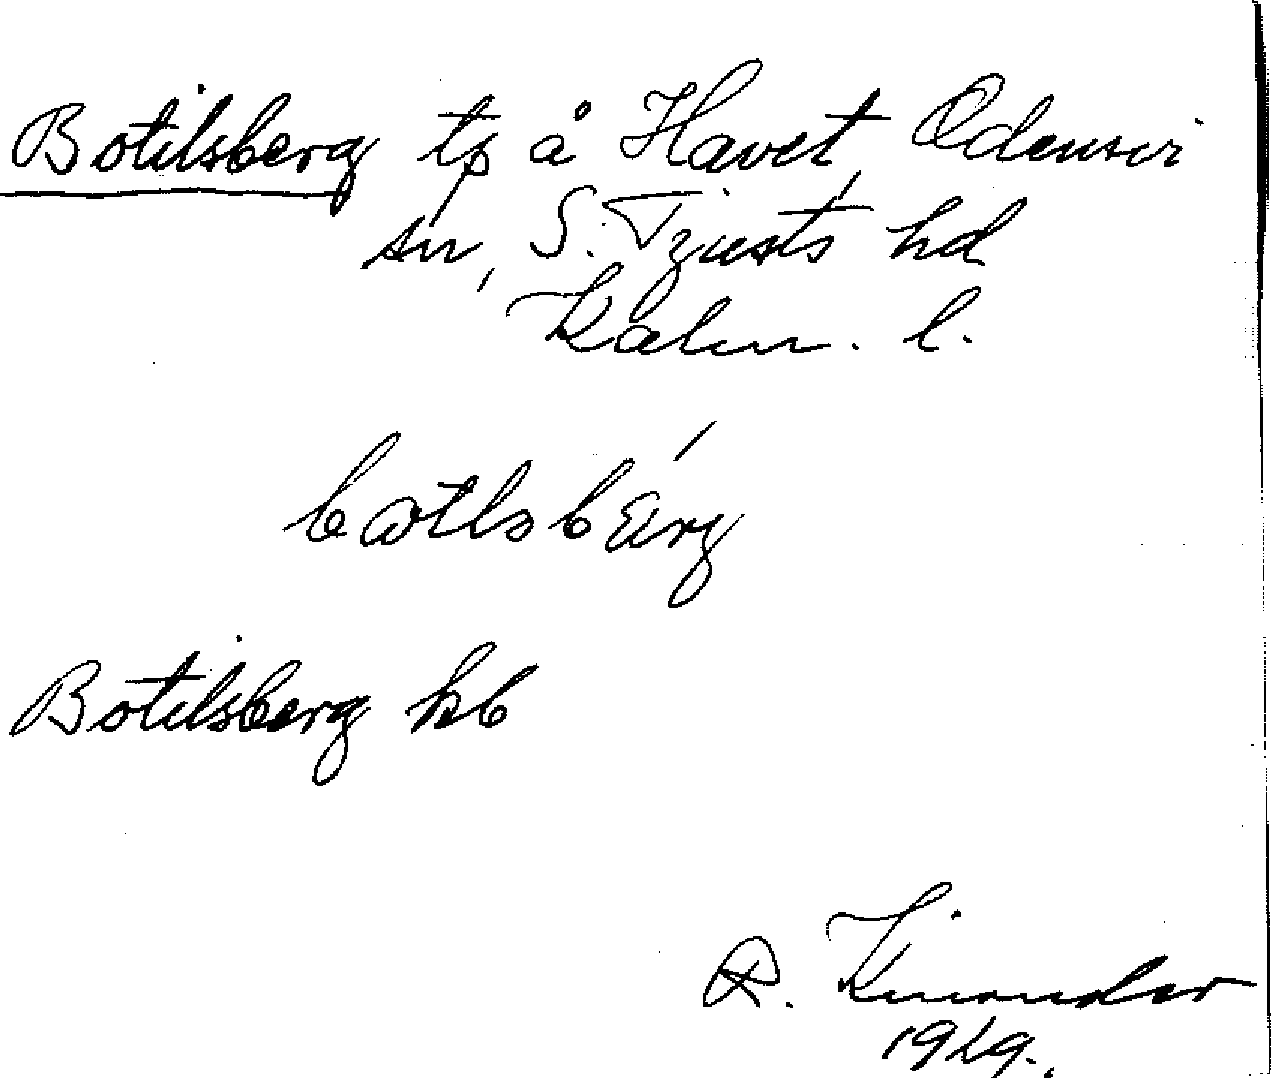 Botilsberg tp å Havet, Odensvi
sn, S. Tjusts hd
Kalm. l.
Botilsberg kb
R. Kinander
1919.